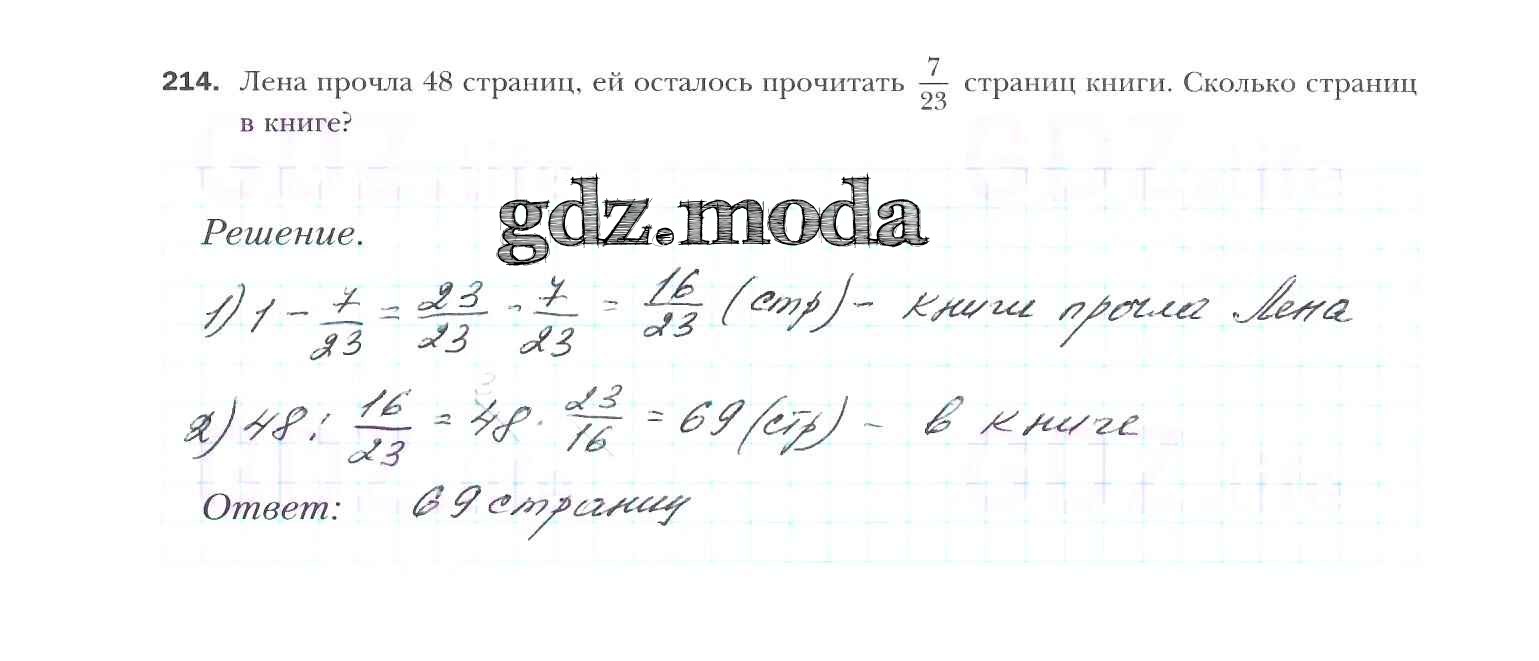 214. Лена прочла 48 страниц, ей осталось прочитать 7/23 страниц книги. Сколько страниц
в книге?
gdz.moda
Решение.
1) 1 - 7/23 = 23/23 - 7/23 = 16/23 (стр) - книги прочла Лена
2) 48 : 16/23 = 48 · 23/16 = 69 (стр) - в книге
Ответ: 69 страниц